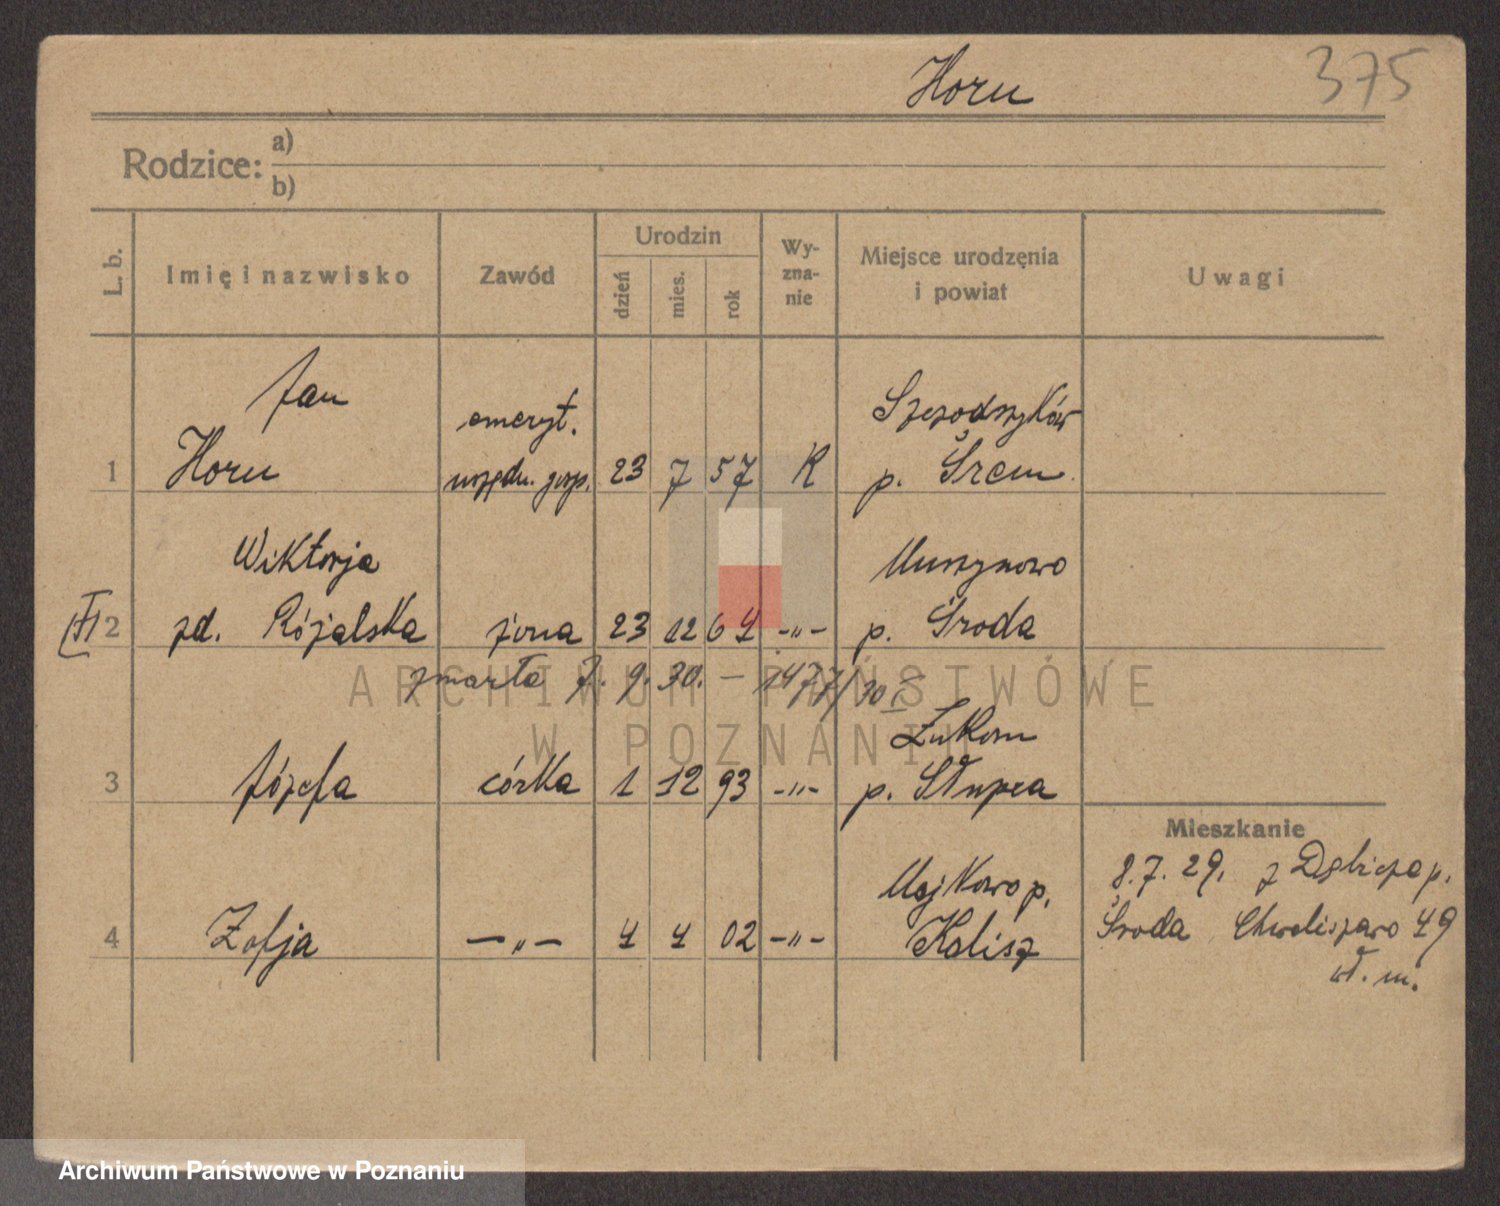 Horn
375
Rodzice: a)
b)
L. b.
Imię i nazwisko
Zawód
Urodzin
dzień
mies.
rok
Wy-
zna-
nie
Miejsce urodzęnia
i powiat
Uwagi
Jan emeryt. Szczodrzyków
1 Horn urzędn. gosp. 23 7 57 K p. Śrem
Wiktorja Murzynowo
2 zd. Różalska żona 23 12 64 -"- p. Środa
zmarła 7. 9. 30. - 1477/30
Żukom
3 Józefa córka 1 12 93 -"- p. Słupca
Majkowo p.
4 Zofja -"- 4 4 02 -"- Kalisz
Mieszkanie
8.7.29. z Dębicza p.
Środa Chwaliszewo 49
wł. m.
ARCHIWUM PAŃSTWOWE
W POZNANIU
Archiwum Państwowe w Poznaniu